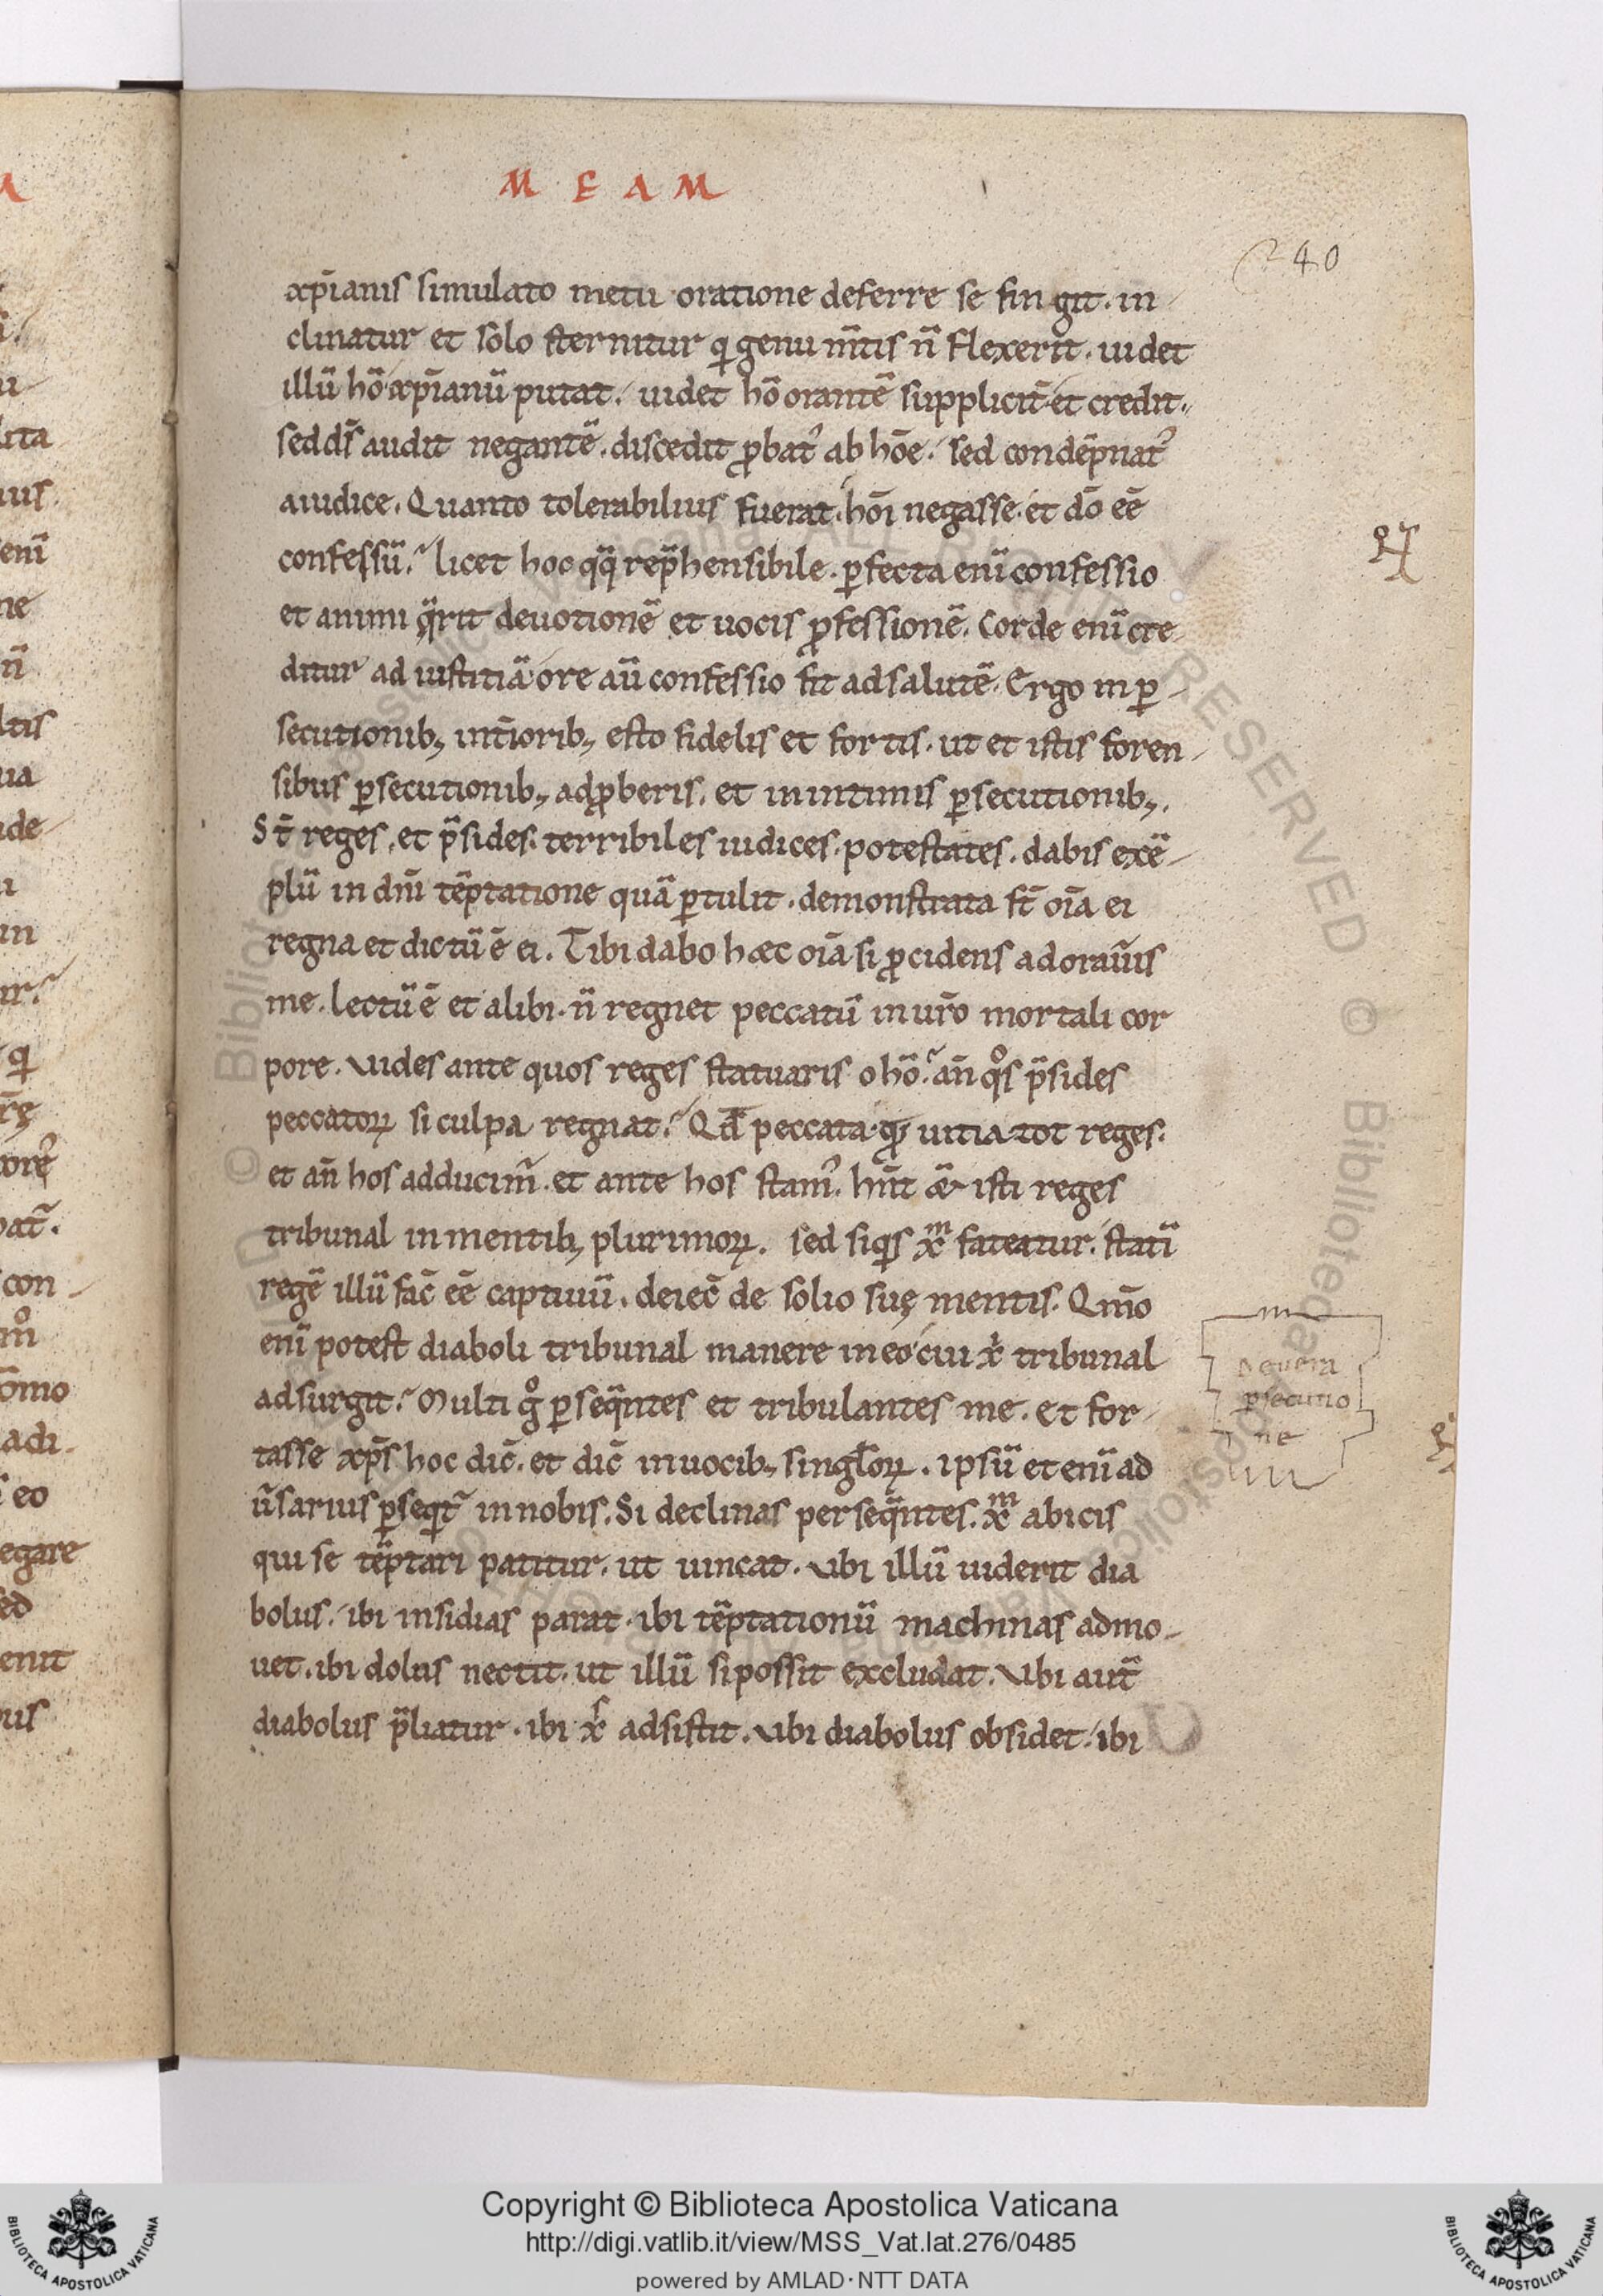 M E A M
240
xp̄ianis simulato metu oratione deferre se fingit. in-
clinatur et solo sternitur q genu m̄tis n̄ flexerit. uidet
illū hō xp̄ianū putat. uidet hō orantē suppliciť et credit.
sed ds̄ audit negantē. discedit ꝓbat᾽ ab hōe. sed condēpnat᾽
a iudice. Quanto tolerabilius fuerat hōi negasse. et dō eē
confessū. licet hoc qq̄ rep̄hensibile. ꝑfecta enī confessio
et animi q̄rit deuotionē et uocis ꝓfessionē. Corde enī cre
ditur ad iustitiā ore aū confessio fit ad salutē. Ergo in ꝑ-
secutionib; int̄iorib; esto fidelis et fortis. ut et istis foren-
sibus ꝑsecutionib; adꝓberis. et in intimis ꝑsecutionib;.
St̄ reges. et p̄sides. terribiles iudices. potestates. dabis exē-
plū in dn̄i tēptatione quā ꝑtulit. demonstrata st̄ oīa ei
regna et dictū ē ei. Tibi dabo hæc oīa si ꝓcidens adorau̅is
me. lectū ē et alibi. n̄ regnet peccatū in ur̄o mortali cor
pore. Vides ante quos reges statuaris o hō. an̄ qͦs p̄sides
peccatoꝝ si culpa regnat. Qđ peccata. q uitia. tot reges.
et an̄ hos adducim᾽. et ante hos stam᾽. hn̄t & isti reges
tribunal in mentib; plurimoꝝ. sed siqs xͫ fateatur. statī
regē illū fac̄ eē captiuū. deiec̄ de solio suę mentis. Qm̄o
enī potest diaboli tribunal manere in eo cui x̄ tribunal
adsurgit. Multi gͦ ꝑseq̄ntes et tribulantes me. Et for-
tasse xp̄s hoc dic̄. et dic̄ in uocib; singl̄oꝝ. ipsū etenī ad
u̅sarius ꝑseqt᾽ in nobis. Si declinas perseq̄ntes. xͫ abicis
qui se tēptari patitur. ut uincat. Vbi illū uiderit dia
bolus. ibi insidias parat. ibi tēptationū machinas admo-
uet. ibi dolus nectit. ut illū si possit excludat. Vbi aut̄
diabolus p̄liatur. ibi x̄s adsistit. Vbi diabolus obsidet. ibi
De uera
ꝑsecutio
ne
Copyright © Biblioteca Apostolica Vaticana
http://digi.vatlib.it/view/MSS_Vat.lat.276/0485
powered by AMLAD·NTT DATA
BIBLIOTECA APOSTOLICA VATICANA
BIBLIOTECA APOSTOLICA VATICANA